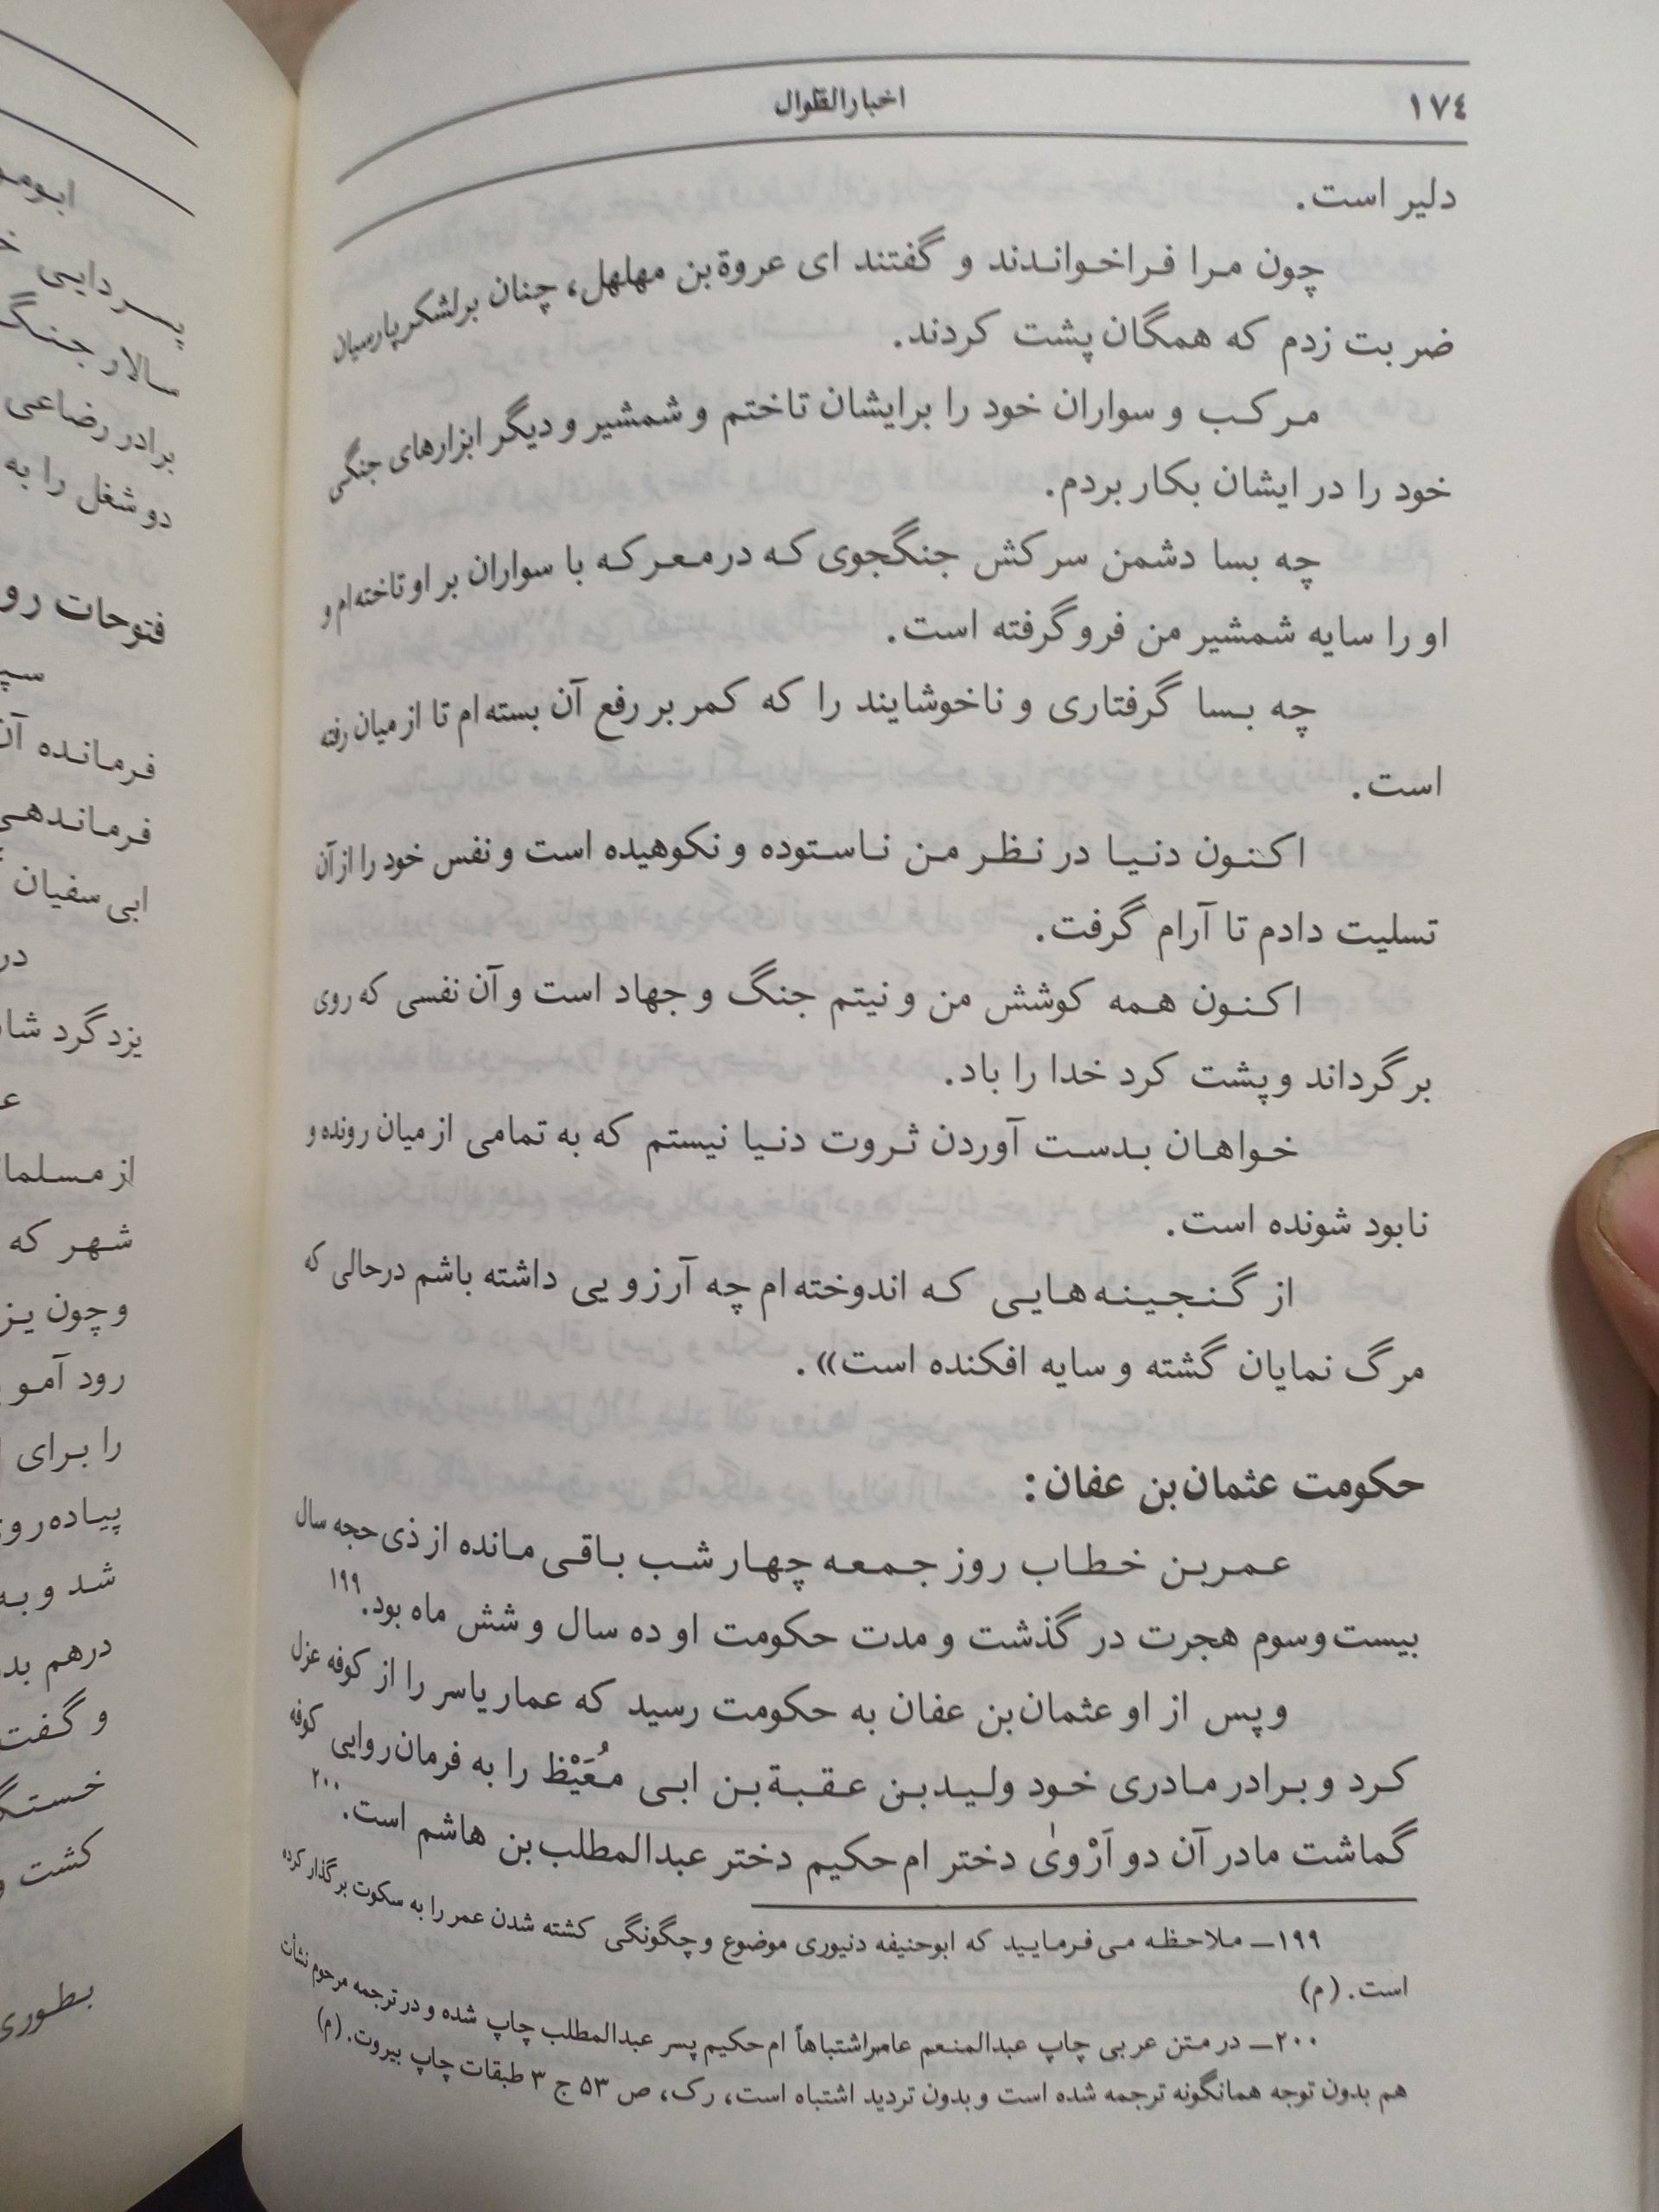 ۱۷٤
اخبارالطوال
دلیر است.
چون مرا فراخواندند و گفتند ای عروة بن مهلهل، چنان برلشکر پارسیان
ضربت زدم که همگان پشت کردند.
مرکب و سواران خود را برایشان تاختم و شمشیر و دیگر ابزارهای جنگی
خود را در ایشان بکار بردم.
چه بسا دشمن سرکش جنگجوی که درمعرکه با سواران بر او تاخته‌ام و
او را سایه شمشیر من فروگرفته است.
چه بسا گرفتاری و ناخوشایند را که کمر بر رفع آن بسته‌ام تا از میان رفته
است.
اکنون دنیا در نظر من ناستوده و نکوهیده است و نفس خود را از آن
تسلیت دادم تا آرام گرفت.
اکنون همه کوشش من و نیتم جنگ و جهاد است و آن نفسی که روی
برگرداند و پشت کرد خدا را باد.
خواهان بدست آوردن ثروت دنیا نیستم که به تمامی از میان رونده و
نابود شونده است.
از گنجینه‌هایی که اندوخته‌ام چه آرزویی داشته باشم درحالی که
مرگ نمایان گشته و سایه افکنده است».
حکومت عثمان بن عفان:
عمربن خطاب روز جمعه چهار شب باقی مانده از ذی حجه سال
بیست و سوم هجرت در گذشت و مدت حکومت او ده سال و شش ماه بود.۱۹۹
و پس از او عثمان بن عفان به حکومت رسید که عمار یاسر را از کوفه عزل
کرد و برادر مادری خود ولیدبن عقبة بن ابی مُعَیْظ را به فرمان‌روایی کوفه
گماشت مادر آن دو اَرْویٰ دختر ام حکیم دختر عبدالمطلب بن هاشم است.۲۰۰
۱۹۹ــ ملاحظه می فرمایید که ابوحنیفه دنیوری موضوع و چگونگی کشته شدن عمر را به سکوت برگذار کرده
است. (م)
۲۰۰ــ در متن عربی چاپ عبدالمنعم عامراشتباهاً ام حکیم پسر عبدالمطلب چاپ شده و در ترجمه مرحوم نشأت
هم بدون توجه همانگونه ترجمه شده است و بدون تردید اشتباه است، رک، ص ۵۳ ج ۳ طبقات چاپ بیروت. (م)
پسر دایی
سالار جنگ
برادر رضاعی
دو شغل را به
فتوحات
فرمانده
ابی سفیان
در
یزدگرد
از
شهر که
و چون
رود آمو
را برای
شد و
درهم
و
کشت